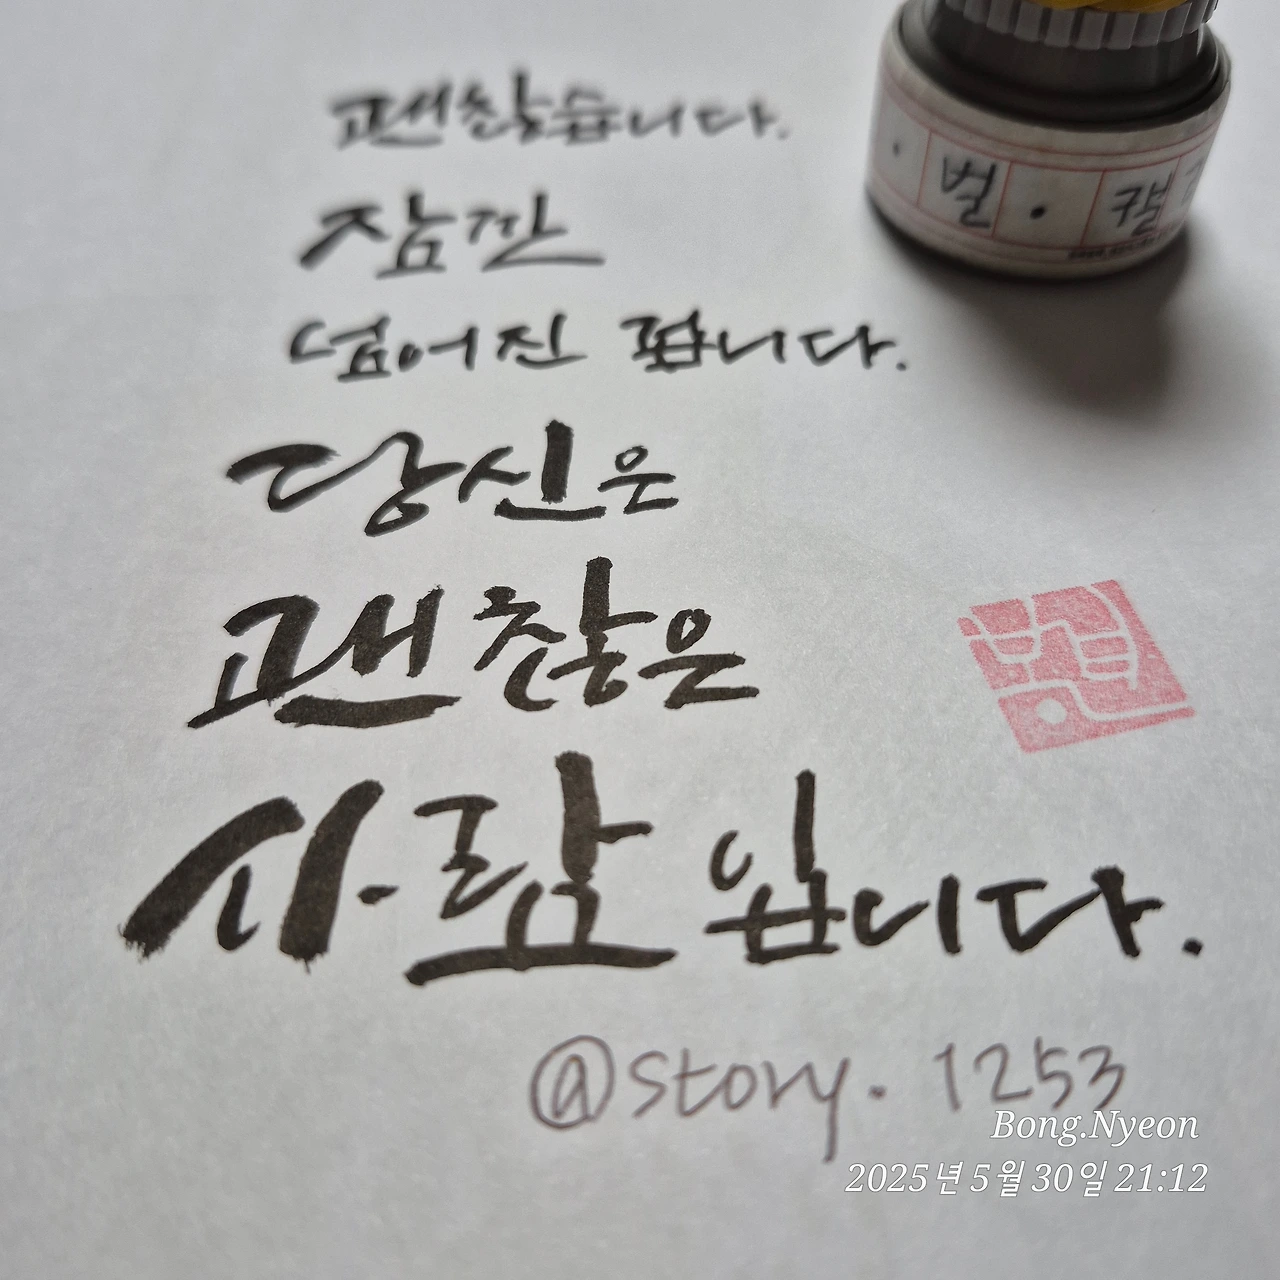 괜찮습니다.
잠깐
넘어진 겁니다.
당신은
괜찮은
사람 입니다.
@story.1253
Bong.Nyeon
2025년 5월 30일 21:12
· 별 ·